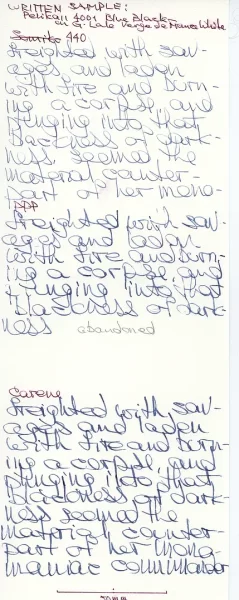 WRITTEN SAMPLE:
Pelikan 4001 Blue Black
on G. Lalo Verge de France White
440
freighted with sav-
ages and laden
with fire and burn-
ing a corpse, and
plunging into that
blackness of dark-
ness, seemed the
material counter-
part of her mono-
freighted with sav-
ages and laden
with fire and burn-
ing a corpse, and
plunging into that
blackness of dark-
ness abandoned
Carene
freighted with sav-
ages and laden
with fire and burn-
ing a corpse, and
plunging into that
blackness of dark-
ness seemed the
material counter-
part of her mono-
maniac commander